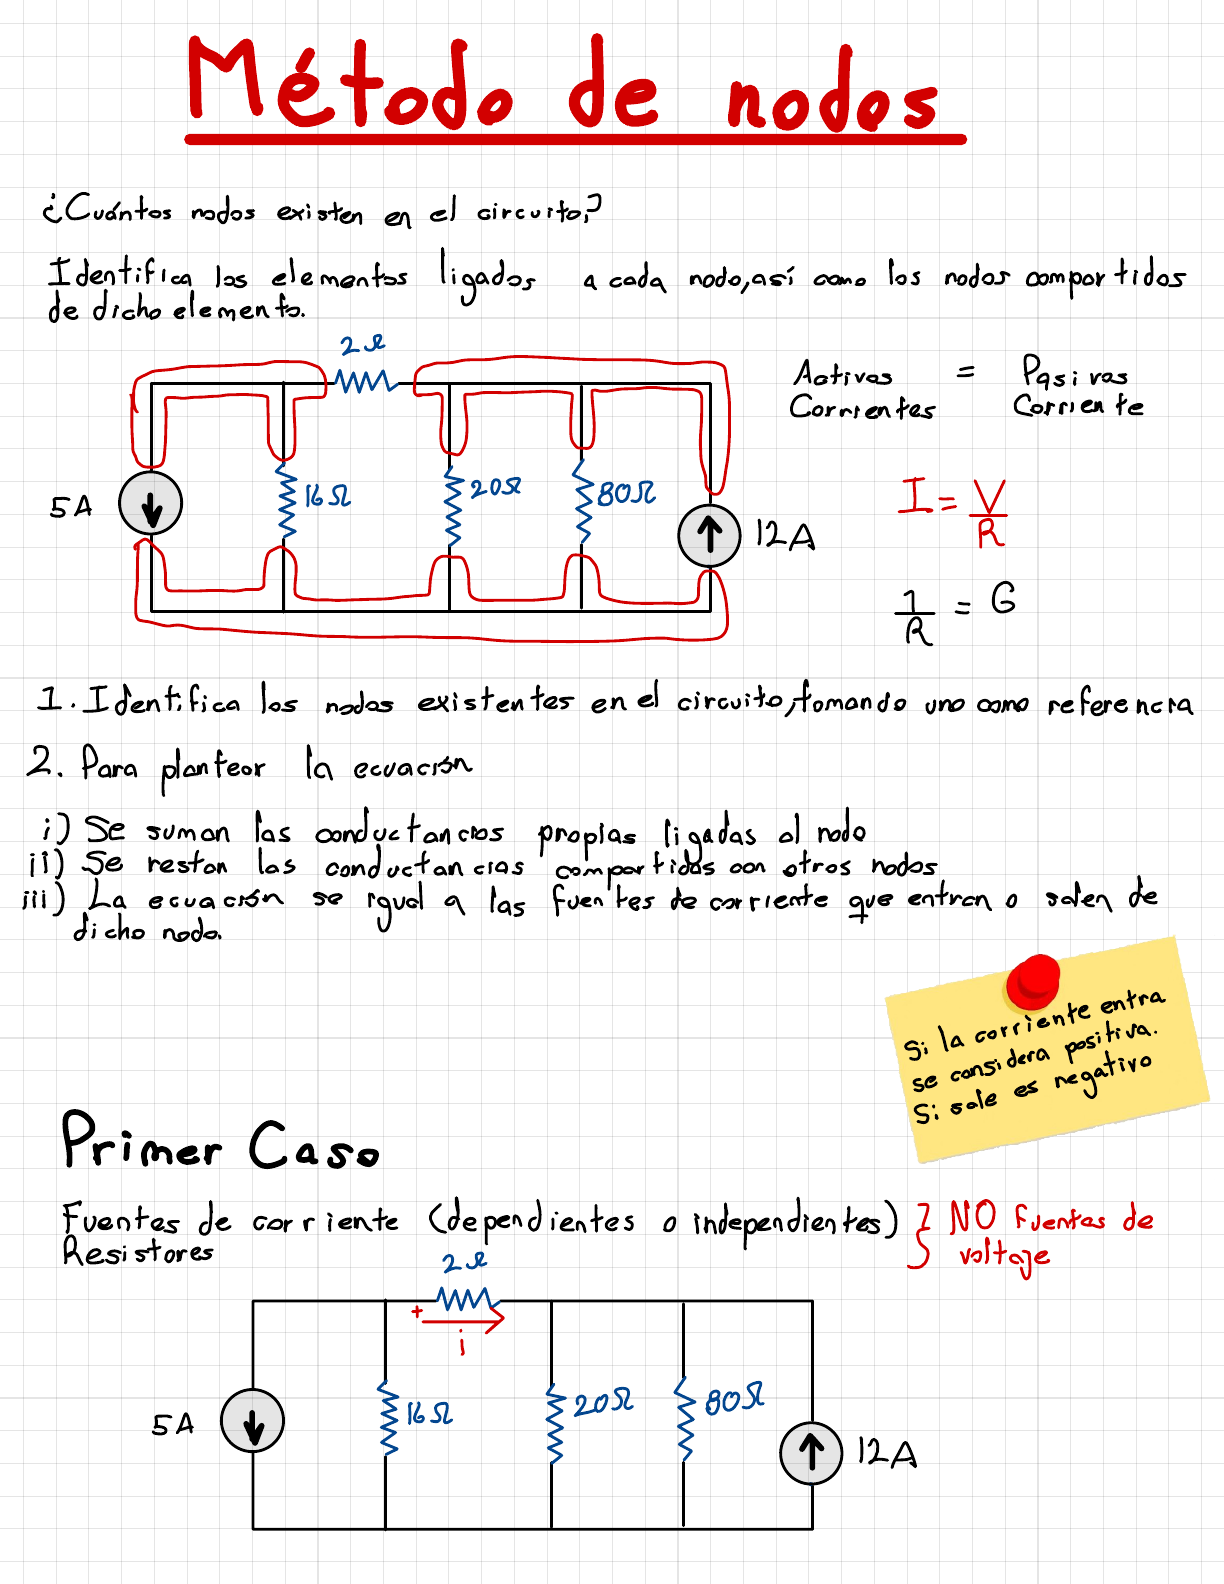 Método de nodos
¿Cuántos nodos existen en el circuito?
Identifica los elementos ligados a cada nodo, así como los nodos compartidos
de dicho elemento.
2Ω
Activas = Pasivas
Corrientes Corriente
5A 16Ω 20Ω 80Ω 12A
I = V/R
1/R = G
1. Identifica los nodos existentes en el circuito, tomando uno como referencia
2. Para plantear la ecuación
i) Se suman las conductancias propias ligadas al nodo
ii) Se restan las conductancias compartidas con otros nodos
iii) La ecuación se igual a las fuentes de corriente que entran o salen de
dicho nodo.
Si la corriente entra
se considera positiva.
Si sale es negativo
Primer Caso
Fuentes de corriente (dependientes o independientes) } NO fuentes de
Resistores voltaje
2Ω
+
i
5A 16Ω 20Ω 80Ω 12A